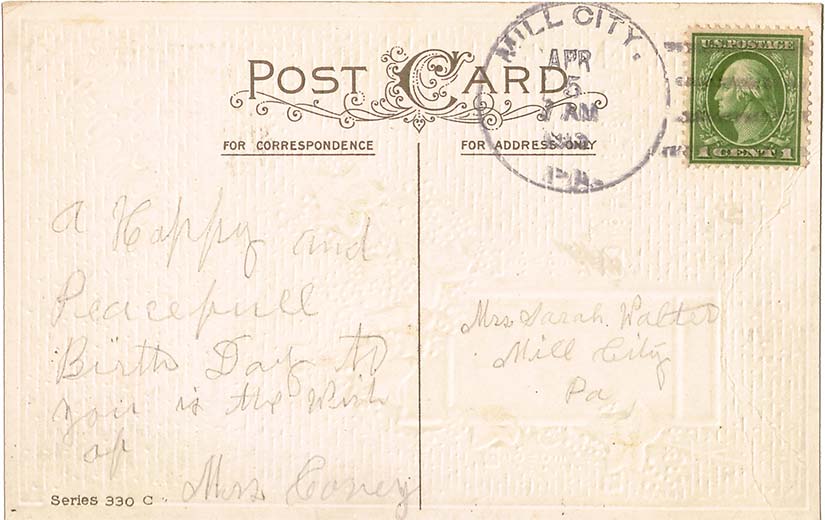 POST CARD
FOR CORRESPONDENCE
FOR ADDRESS ONLY
MILL CITY.
APR
5
7 AM
PA.
U.S. POSTAGE
1 CENT 1
a Happy and
Peacefull
Birth Day to
you is the Wish
of
Mrs Coney
Mrs Sarah Walter
Mill City
Pa
Series 330 C